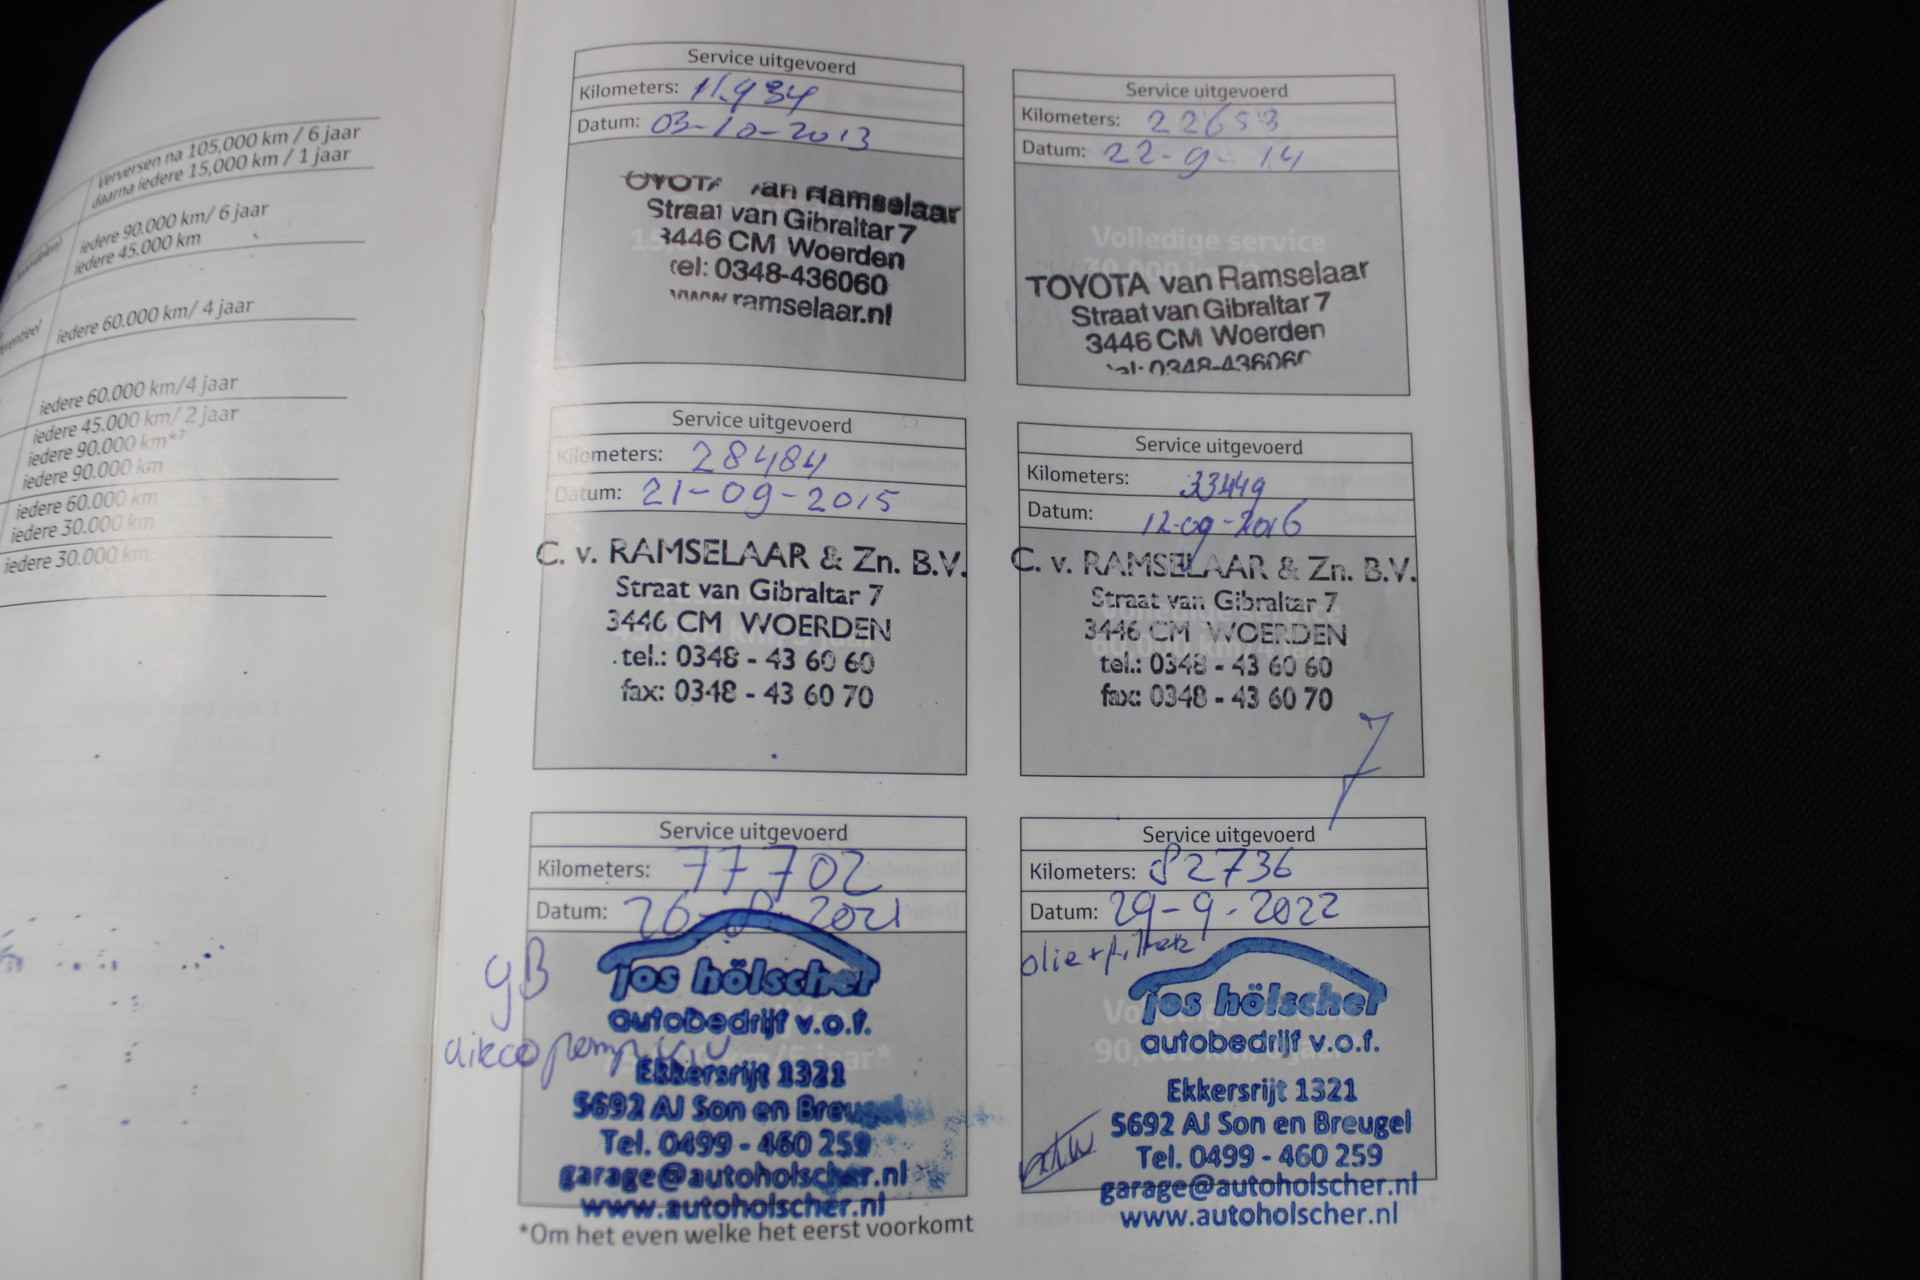 Verversen na 105,000 km / 6 jaar
daarna iedere 15,000 km / 1 jaar
iedere 90.000 km/ 6 jaar
iedere 45.000 km
iedere 60.000 km/ 4 jaar
iedere 60.000 km/4 jaar
iedere 45.000 km/ 2 jaar
iedere 90.000 km*7
iedere 90.000 km
iedere 60.000 km
iedere 30.000 km
iedere 30.000 km
Service uitgevoerd
Kilometers: 11.934
Datum: 03-10-2013
TOYOTA van Ramselaar
Straat van Gibraltar 7
3446 CM Woerden
tel: 0348-436060
www.ramselaar.nl
Service uitgevoerd
Kilometers: 22653
Datum: 22-9-14
Volledige service
TOYOTA van Ramselaar
Straat van Gibraltar 7
3446 CM Woerden
tel: 0348-436060
Service uitgevoerd
Kilometers: 28484
Datum: 21-09-2015
C. v. RAMSELAAR & Zn. B.V.
Straat van Gibraltar 7
3446 CM WOERDEN
tel.: 0348 - 43 60 60
fax: 0348 - 43 60 70
Service uitgevoerd
Kilometers: 33449
Datum: 12-09-2016
C. v. RAMSELAAR & Zn. B.V.
Straat van Gibraltar 7
3446 CM WOERDEN
tel.: 0348 - 43 60 60
fax: 0348 - 43 60 70
Service uitgevoerd
Kilometers: 77702
Datum: 26-8-2021
gB
jos hölscher
autobedrijf v.o.f.
Ekkersrijt 1321
5692 AJ Son en Breugel
Tel. 0499 - 460 259
garage@autoholscher.nl
www.autoholscher.nl
Service uitgevoerd
Kilometers: 82736
Datum: 29-9-2022
olie + filter
jos hölscher
autobedrijf v.o.f.
Ekkersrijt 1321
5692 AJ Son en Breugel
Tel. 0499 - 460 259
garage@autoholscher.nl
www.autoholscher.nl
*Om het even welke het eerst voorkomt